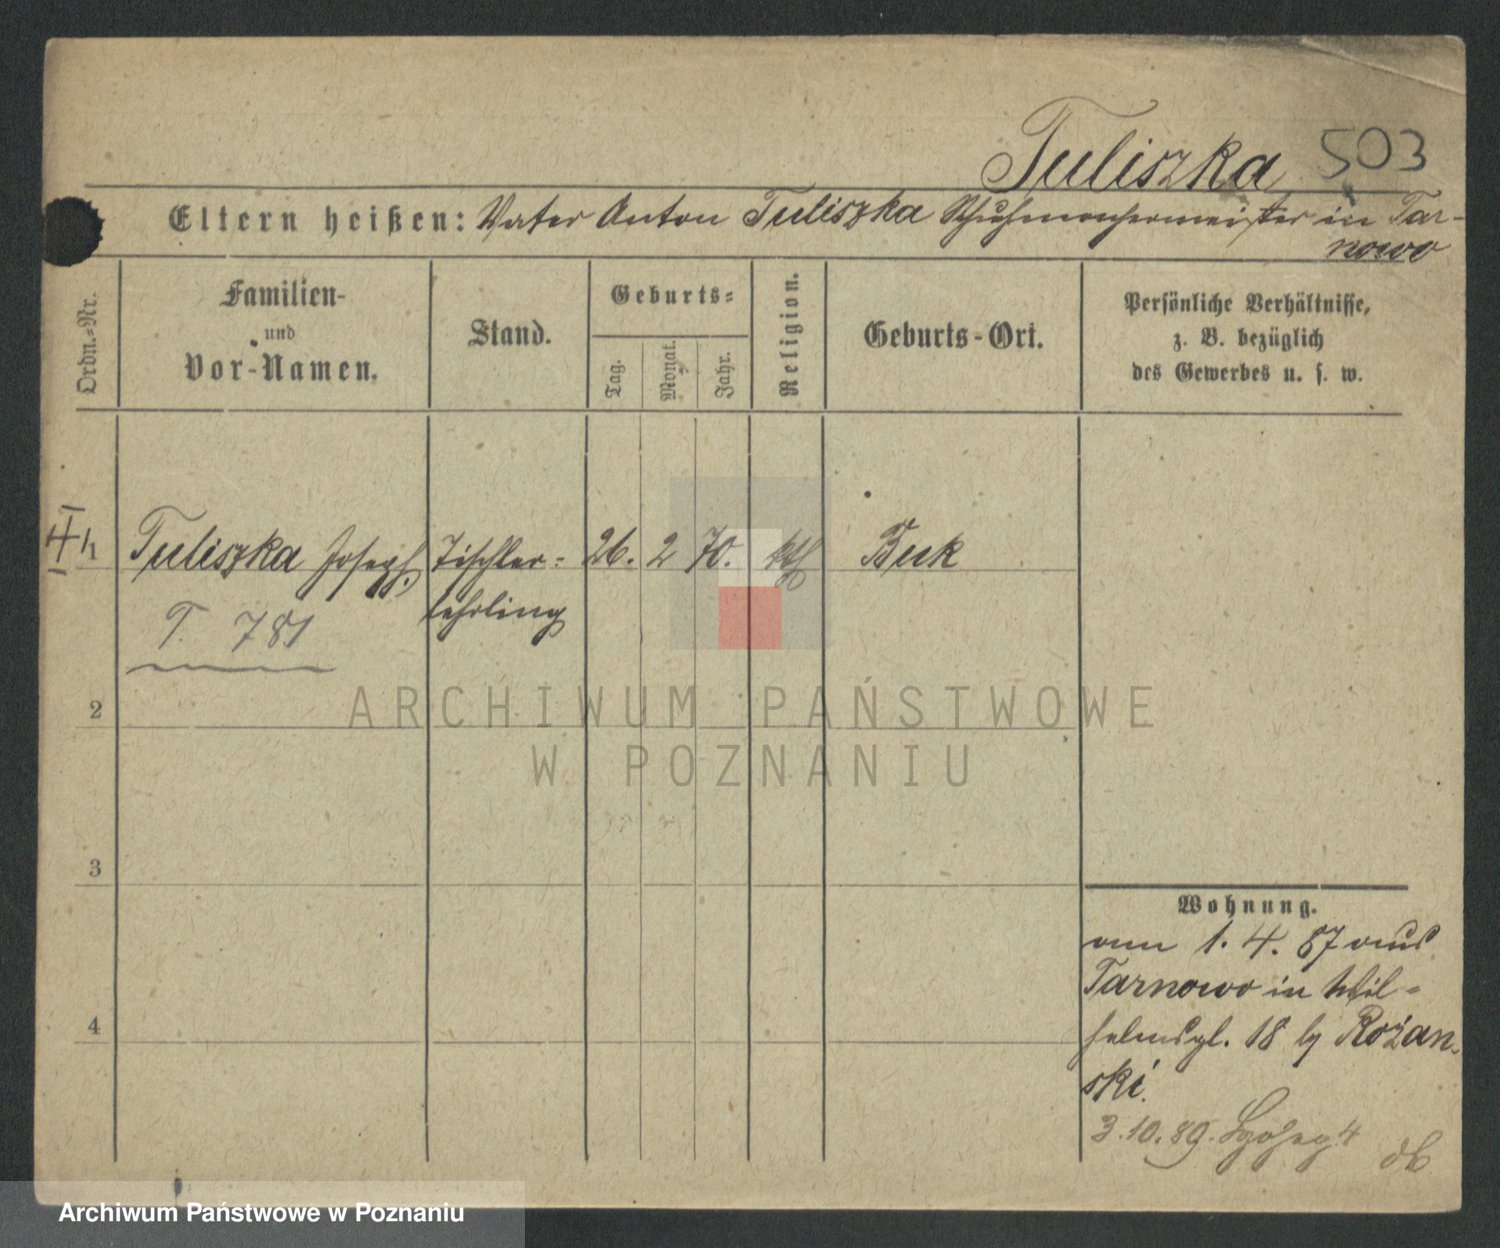 Tuliszka 503
Eltern heißen: Vater Anton Tuliszka Schuhmachermeister in Tar-
nowo
Ordn.-Nr.
Familien-
und
Vor-Namen.
Stand.
Geburts-
Tag.
Monat.
Jahr.
Religion.
Geburts-Ort.
Persönliche Verhältnisse,
z. B. bezüglich
des Gewerbes u. s. w.
1 Tuliszka Joseph. Tischler- 26. 2 70. kth Buk
lehrling
T. 781
2
ARCHIWUM PAŃSTWOWE
W POZNANIU
3
Wohnung.
am 1. 4. 87 aus
Tarnowo in Wil-
helmspl. 18 b/ Rożan-
ski.
4
3.10.89.
Archiwum Państwowe w Poznaniu